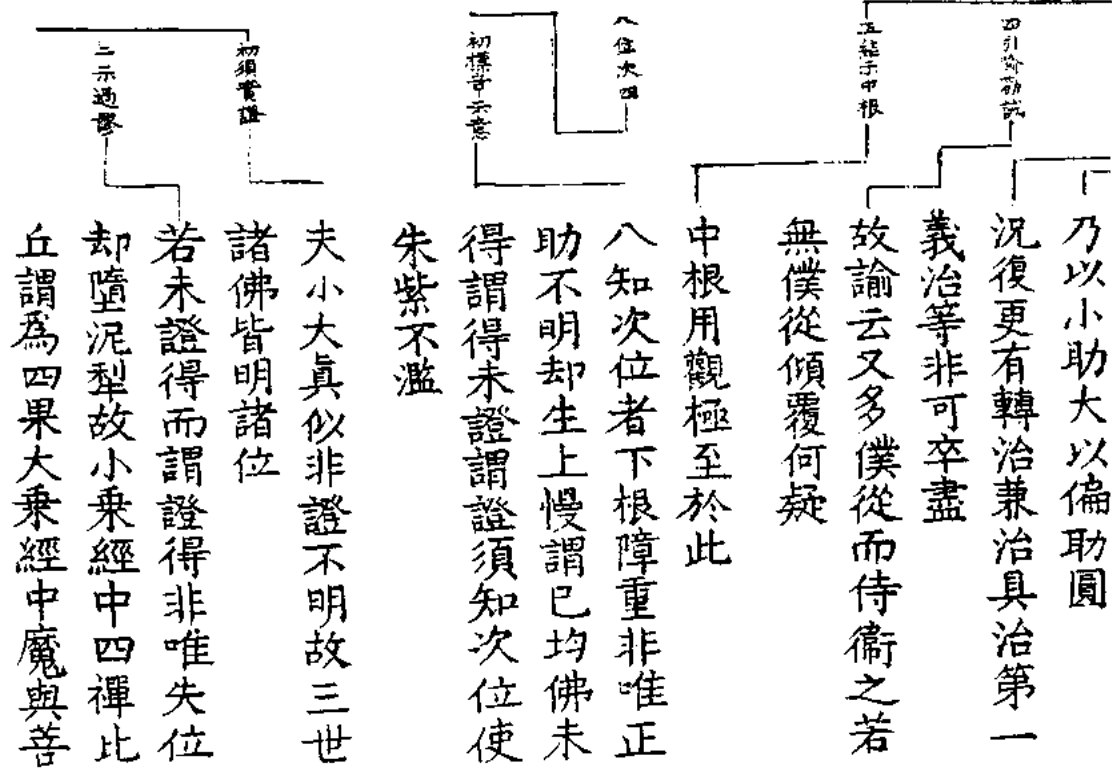 四引喻勸誡
五結示中根
八位次四
初標章示意
初須實證
二示過謬
乃以小助大以偏助圓
況復更有轉治兼治具治第一
義治等非可卒盡
故諭云又多僕從而侍衞之若
無僕從傾覆何疑
中根用觀極至於此
八知次位者下根障重非唯正
助不明却生上慢謂已均佛未
得謂得未證謂證須知次位使
朱紫不濫
夫小大眞似非證不明故三世
諸佛皆明諸位
若未證得而謂證得非唯失位
却墮泥犁故小乗經中四禪比
丘謂爲四果大乗經中魔與善